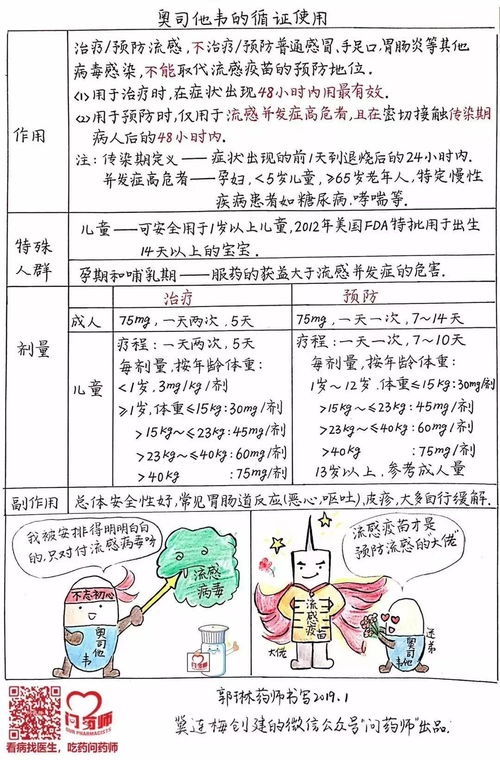 奥司他韦的循证使用
作用
治疗/预防流感,不治疗/预防普通感冒、手足口、胃肠炎等其他
病毒感染,不能取代流感疫苗的预防地位.
<1>用于治疗时,在症状出现48小时内用最有效.
<2>用于预防时,仅用于流感并发症高危者,且在密切接触传染期
病人后的48小时内.
注:传染期定义——症状出现的前1天到退烧后的24小时内.
并发症高危者——孕妇,<5岁儿童,≥65岁老年人,特定慢性
疾病患者如糖尿病、哮喘等.
特殊
人群
儿童——可安全用于1岁以上儿童,2012年美国FDA特批用于出生
14天以上的宝宝.
孕期和哺乳期——服药的获益大于流感并发症的危害.
剂量
治疗
预防
成人
75mg,一天两次,5天
75mg,一天一次,7~14天
儿童
疗程:一天两次,5天
每剂量,按年龄体重:
<1岁,3mg/kg/剂
≥1岁,体重≤15kg:30mg/剂
>15kg~≤23kg:45mg/剂
>23kg~≤40kg:60mg/剂
>40kg :75mg/剂
疗程:一天一次,7~10天
每剂量,按年龄体重:
1岁~12岁,体重≤15kg:30mg/剂
>15kg~≤23kg:45mg/剂
>23kg~≤40kg:60mg/剂
>40kg :75mg/剂
13岁以上,参考成人量
副作用
总体安全性好,常见胃肠道反应(恶心、呕吐),皮疹,大多自行缓解.
我被安排得明明白白
的,只对付流感病毒呀
不忘初心
奥司他韦
流感
病毒
问药师
流感疫苗才是
预防流感的"大佬"
流感疫苗
大佬
迷弟
奥司他韦
问药师
OUR PHARMACISTS
看病找医生,吃药问药师
郭琳药师书写2019.1
冀连梅创建的微信公众号"问药师"出品.